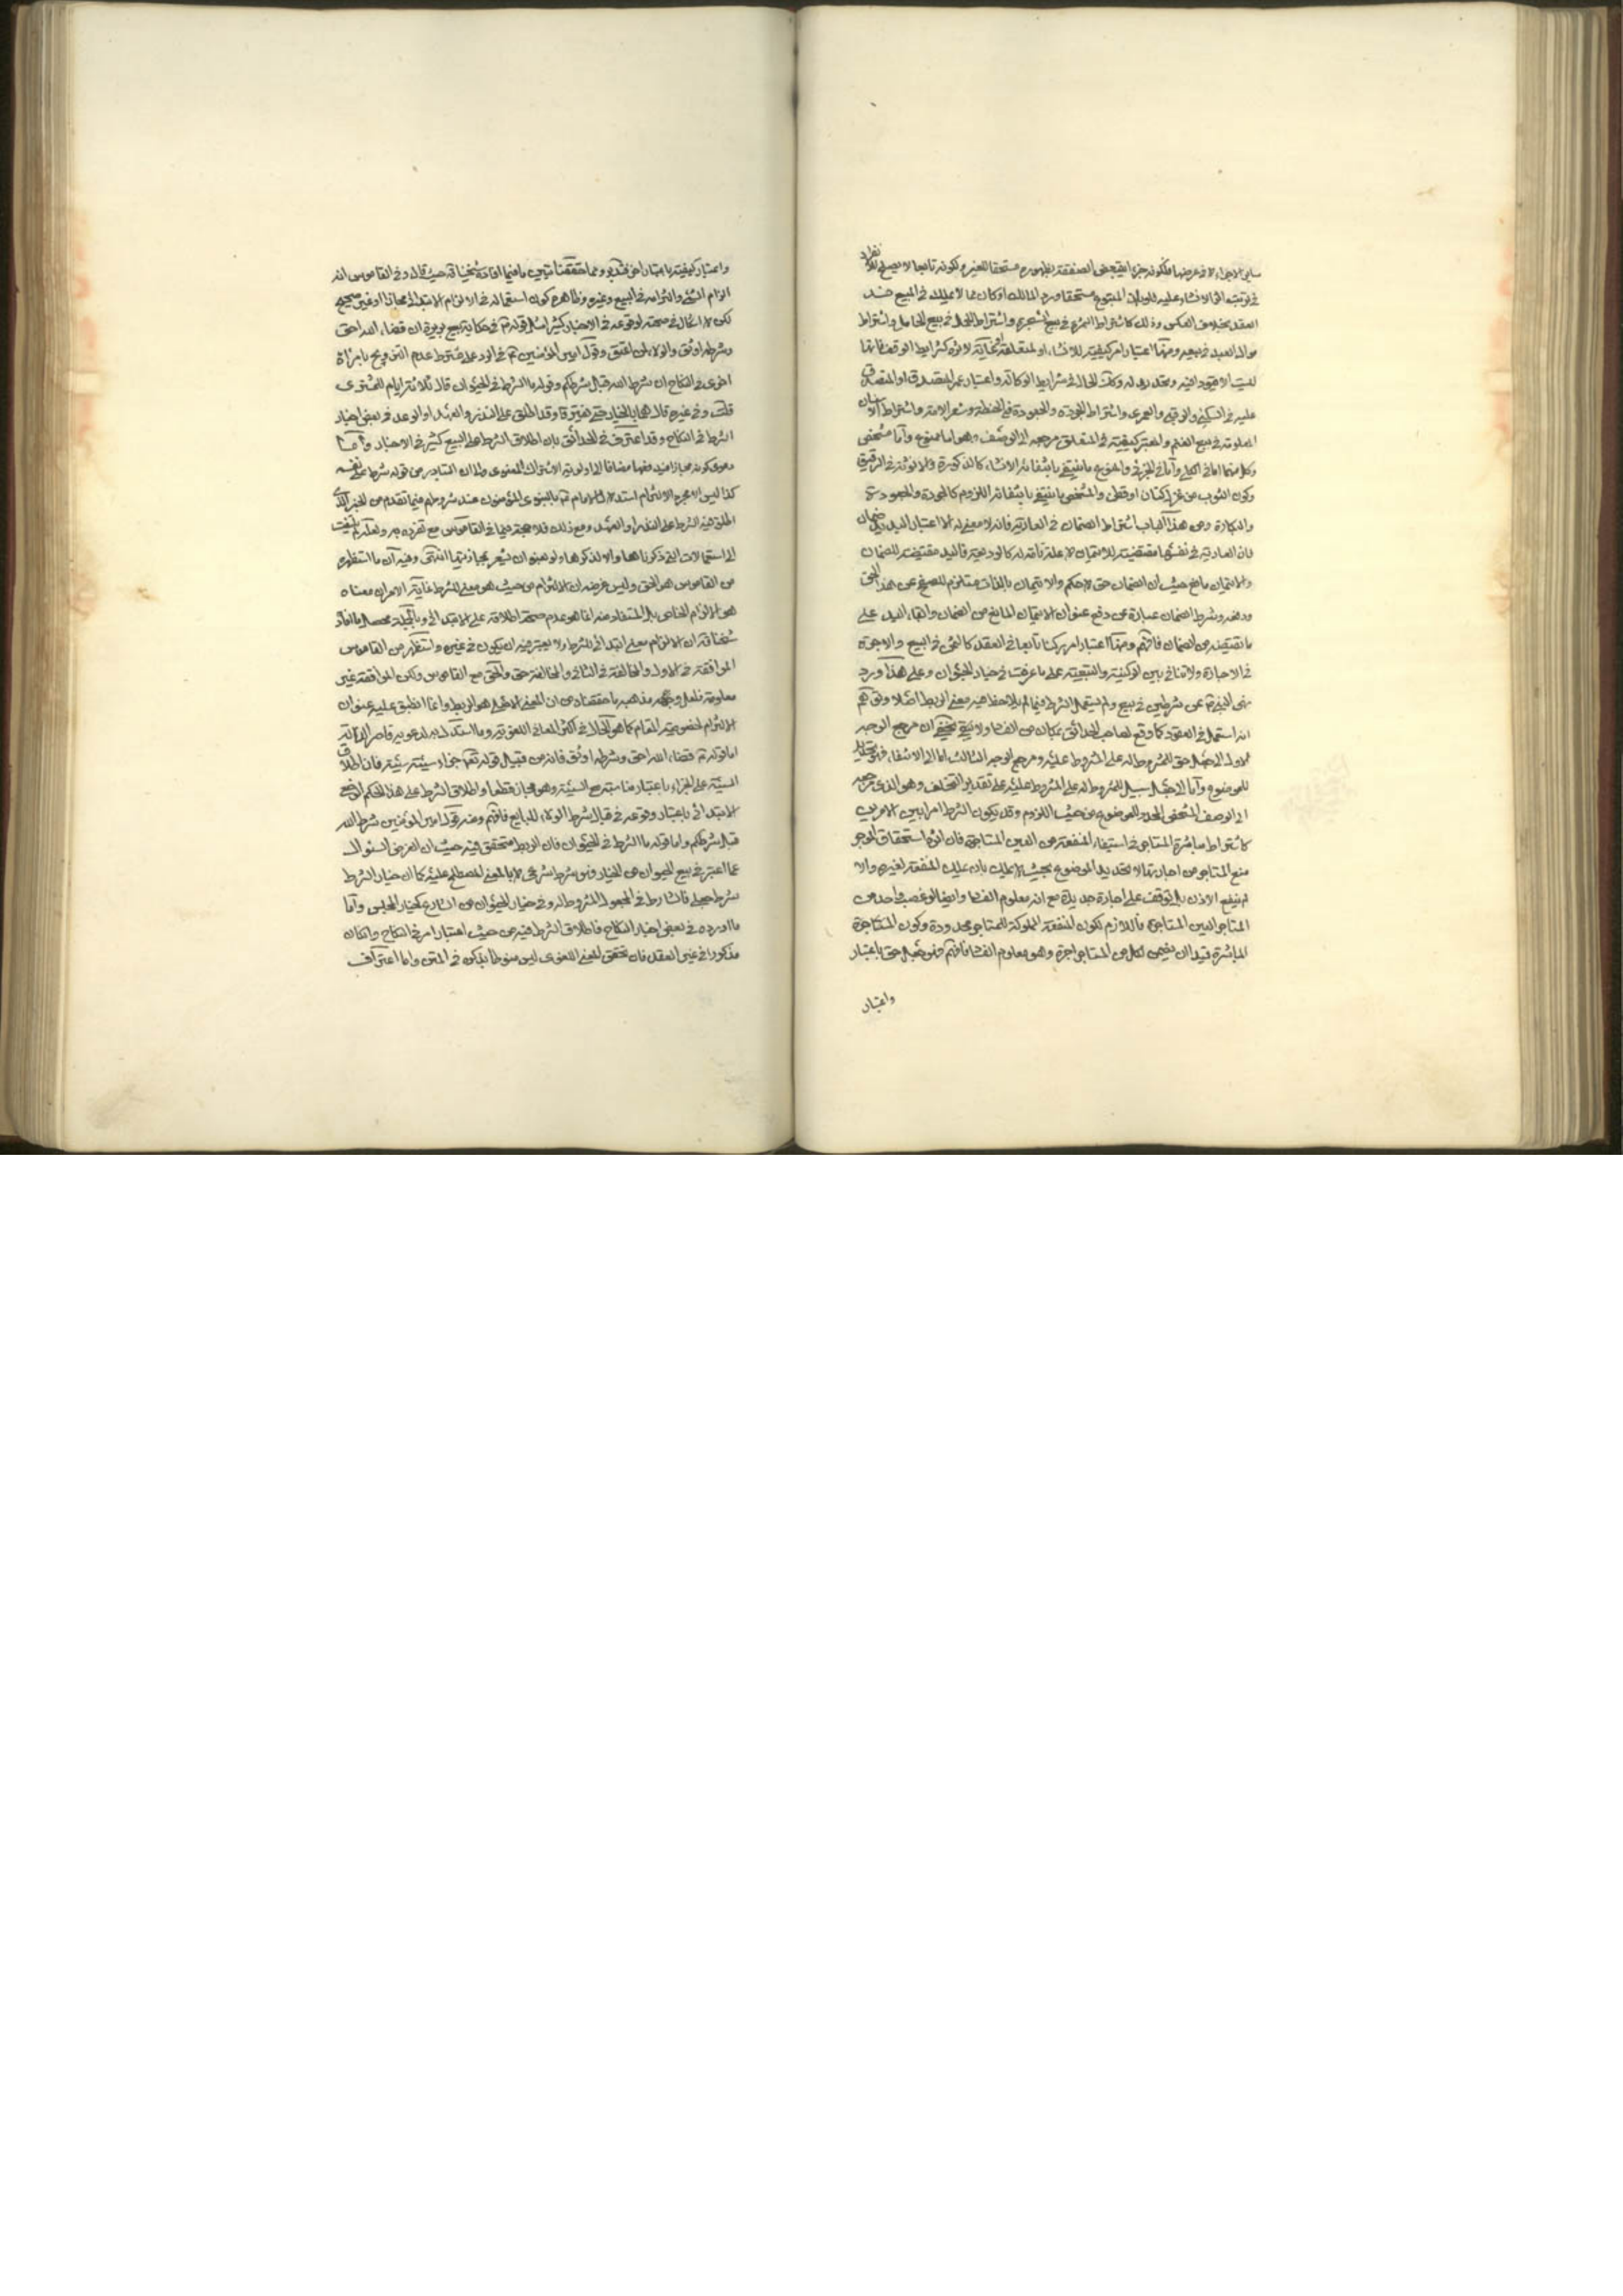 سایر الاجزاء لا فی عرضها فلکونه جزء اذ یتبعض الصفقة بظهوره مستحقا للغیر و لکونه تابعا لا یصح
فی ترتب اثر الانشاء علیه المتبوع مستحقا و رده المالک او کان مما لا یملک فی المبیع ضد
العقد بخلاف العکس و ذلک کاشتراط الثمرة فی بیع الشجرة و اشتراط الحمل فی بیع الحامل و اشتراط
مال العبد فی بیعه و منها اعتبار امر کیفیته للانشاء او لمتعلقه کشرایط الوقف فانها
لیست الا قیودا فیه و تحدیدا له و کک الحال فی شرایط الوکالة و اعتبار عمر المتصدق او المتصدق
علیه فی السکنی و الرقبی و العمری و اشتراط الجودة و فی الحنطة و شعر الامة و اشتراط
المعلومة فی بیع الغنم و المعتبر کیفیته فی المتعلق مرجعه الی الوصف و هو اما ممنوع و اما مشخص
و کل منهما اما فی الکلی و اما فی الجزئی و ما ینتفی بانتفائه الانشاء کالذکورة و الانوثة فی الرقیق
و کون الثوب من کتان او قطن و المشخص ما ینتفی بانتفائه اللزوم کالجودة
و البکارة و من هذا الباب اشتراط الضمان فی العاریة فانه لا معنی له الا اعتبار الید ید ضمان
فان العاریة فی نفسها مقتضیة للایتمان لا علة تامة له کالودیعة فالید مقتضیة للضمان
و الایتمان مانع حیث ان الضمان حق لا حکم و الایتمان بالذات مستلزم للصفح عن هذا الحق
و رفعه و شرط الضمان عبارة عن دفع عنوان الایتمان المانع من الضمان و ابقاء الید علی
ما تقتضیه من الضمان فافهم و منها اعتبار امر رکنا تابعا فی العقد کالثمن فی البیع و الاجرة
فی الاجارة و لا تنافی بین الرکنیة و التبعیة علی ما عرفت فی خیار الحیوان و علی هذا ورد
نهی النبی عن شرطین فی بیع و لم یستعمل الشرط فیما لم یلاحظ فیه معنی الربط اصلا و توهم
انه استعمل فی العقود کما وقع لصاحب الحدائق بمکان من الفساد و لا یخفی ان مرجع الوجه
الاول الی جعل حق للمشروط له علی المشروط علیه و مرجع الوجه الثالث اما الی الانتفاء
للموضوع و اما الی جعل سبیل للمشروط له علی المشروط علیه علی تقدیر التخلف و هو الذی مرجعه
الی الوصف المشخص المحدد للموضوع من حیث اللزوم و قد یکون الشرط امرا بین الامرین
کاشتراط مباشرة المستاجر فی استیفاء المنفعة من العین المستاجرة فان اثره استحقاق الموجر
منع المستاجر من اجارتها لا تحدید الموضوع بحیث لا یملک بان یملک المنفعة لغیره و الا
لم ینفع الاذن بل یتوقف علی اجارة جدیدة مع انه معلوم الفساد و ایضا لو غصب واحد من
المستاجر العین المستاجرة فاللازم لکون المنفعة المملوکة للمستاجر محدودة و کون المستاجرة
المباشرة قیدا ان یضمن لکل من المستاجر اجرة و هو معلوم الفساد فافهم فهو جعل حق باعتبار
و اعتبار
و اعتبار کیفیته باعتبار اخر فتدبر و مما حققنا تبین ما فیما افاده شیخنا قده حیث قال و فی القاموس انه
الزام الشئ و التزامه فی البیع و غیره و ظاهره کون استعماله فی الالزام الابتدائی مجازا او غیر صحیح
لکن لا اشکال فی صحته لوقوعه فی الاخبار کثیرا مثل قوله فی حکایة بیع بریرة ان قضاء الله احق
و شرطه اوثق و الولاء لمن اعتق و قول امیر المؤمنین فی الرد علی مشترط عدم التزویج بامرأة
اخری فی النکاح ان شرط الله قبل شرطکم و قوله ما الشرط فی الحیوان قال ثلاثة ایام للمشتری
قلت و فی غیره قال هما بالخیار حتی یفترقا و قد اطلق علی النذر و العهد او الوعد فی بعض اخبار
الشرط فی النکاح و قد اعترف فی الحدائق بان اطلاق الشرط علی البیع کثیر فی الاخبار و اما
دعوی کونه مجازا فیدفعها مضافا الی اولویة الاشتراک المعنوی و الی ان المتبادر من قوله شرط علی نفسه
کذا لیس الا مجرد الالزام استدلال الامام بالنبوی المؤمنون عند شروطهم فیما تقدم من الخبر الذی
اطلق فیه الشرط علی النذر او العهد و مع ذلک فلا حجة فیما فی القاموس مع تفرده به و لعله لم یلتفت
الی الاستعمالات التی ذکرناها و الا لذکرها و لو بعنوان یشعر بمجازیتها انتهی و فیه ان ما استظهره
من القاموس هو الحق و لیس غرضه ان الالزام من حیث هو معنی للشرط غایة الامر ان معناه
هو الالزام الخاص بل المستفاد منه انما هو عدم صحة اطلاقه علی الابتدائی و بالجملة محصل ما افاد
شیخنا قده ان الالزام معنی ابتدائی للشرط و لا یعتبر فیه ان یکون فی غیره و استظهر من القاموس
الموافقة فی الاول و المخالفة فی الثانی و المخالفة حق و الحق مع القاموس و لکن الموافقة غیر
معلومة فلعل وجه مذهبه ما حققناه من ان المعنی الاصلی هو الربط و انما انطبق علیه عنوان
الالزام لخصوصیة المقام کما هو الحال فی اکثر المعانی اللغویة و ما استدل به لدعویه قاصر الدلالة
اما قوله قضاء الله احق و شرطه اوثق فانه من قبیل قوله تعالی جزاء سیئة سیئة فان اطلاق
السیئة علی الجزاء باعتبار مناسبته مع السیئة و هو مجاز قطعا و اطلاق الشرط علی هذا الحکم الوضعی
الابتدائی باعتبار وقوعه فی قبال شرط الولاء للبایع فافهم و منه قول امیر المؤمنین شرط الله
قبل شرطکم و اما قوله ما الشرط فی الحیوان فان الربط متحقق فیه حیث ان الغرض السئوال
عما اعتبر فی بیع الحیوان من الخیار فهو شرط شرعی لا بالمعنی المصطلح علیه کما ان خیار الشرط
شرط جعلی فالشارط فی المجعول المشروط له و فی خیار الحیوان من الشارع کخیار المجلس و اما
ما اورده فی بعض اخبار النکاح فاطلاق الشرط فیه من حیث اعتبار امر فی النکاح و ان کان
مذکورا فی غیر العقد فان تحقق المعنی اللغوی لیس منوطا بذکره فی المتن و اما اعتراف